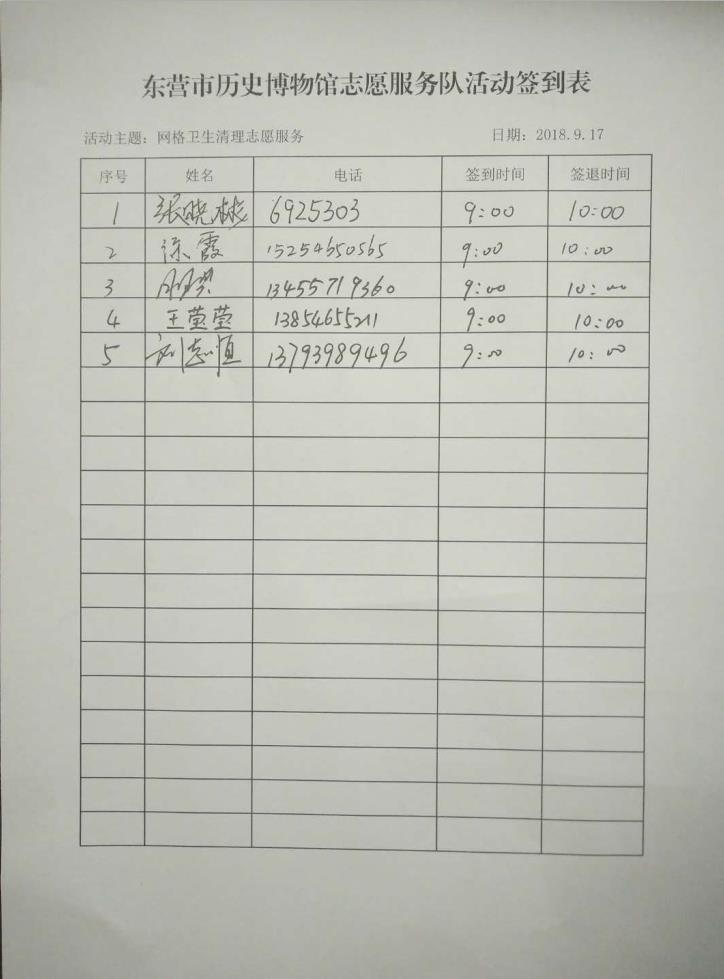 东营市历史博物馆志愿服务队活动签到表
活动主题：网格卫生清理志愿服务 日期：2018.9.17
序号 姓名 电话 签到时间 签退时间
1 张晓彬 6925303 9:00 10:00
2 徐霞 15254650565 9:00 10:00
3 13455719360 9:00 10:00
4 王莹莹 13854655211 9:00 10:00
5 刘志恒 13793989496 9:00 10:00